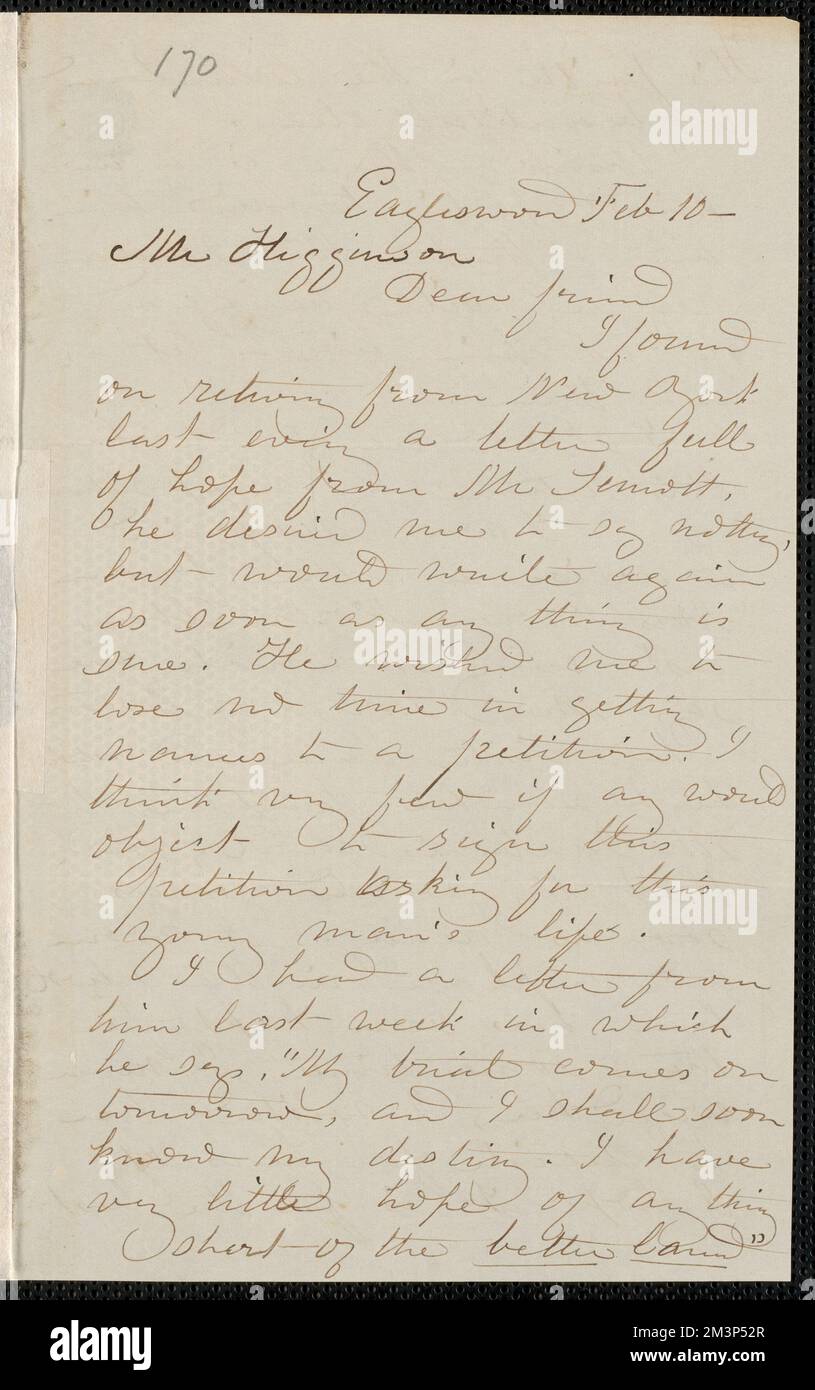 170
Eagleswood Feb 10-
Mr Higginson
Dear friend
I found
on retiring from New York
last eving a letter full
of hope from Mr Sennott,
he desired me to say nothing,
but would write again
as soon as any thing is
sure. He wished me to
lose no time in getting
names to a petition. I
think very few if any would
object to sign this
petition asking for this
young man's life.
I had a letter from
him last week in which
he says, "My trial comes on
tomorrow, and I shall soon
know my destiny. I have
very little hope of any thing
short of the better land"
alamy
alamy
Image ID: 2M3P52R
www.alamy.com